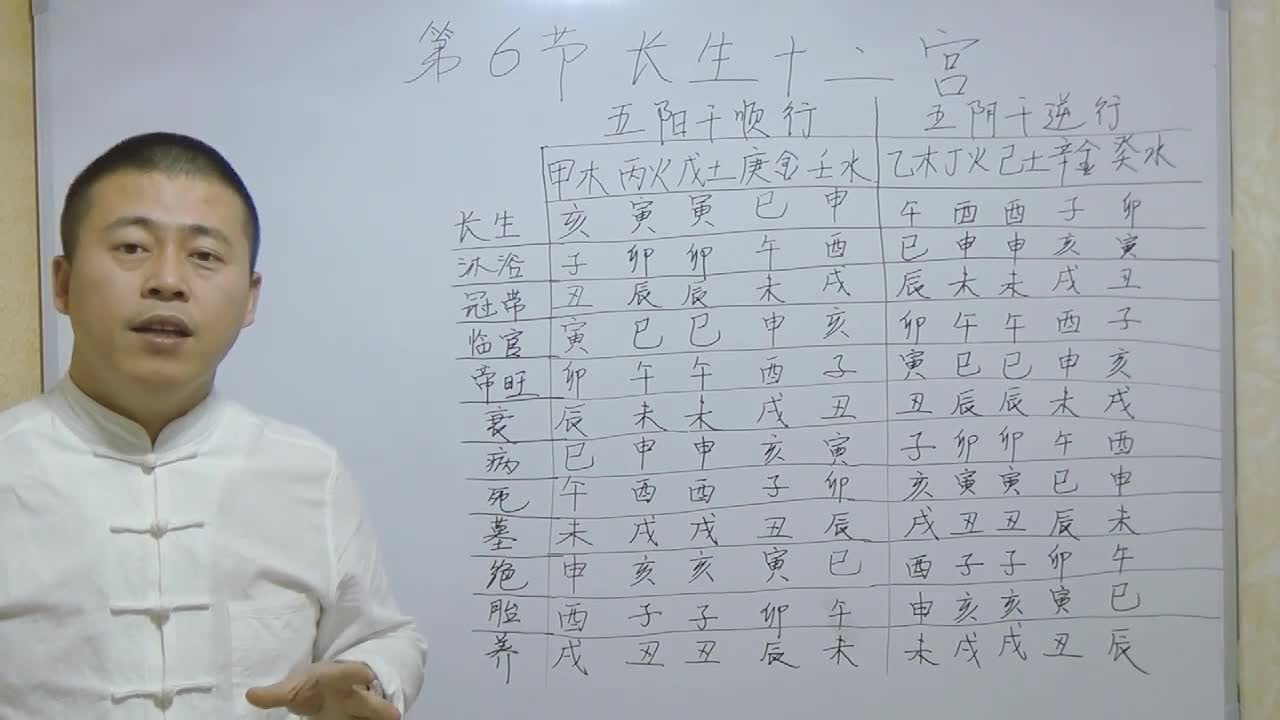 第6节 长生十二宫
五阳干顺行 五阴干逆行
甲木 丙火 戊土 庚金 壬水 乙木 丁火 己土 辛金 癸水
长生 亥 寅 寅 巳 申 午 酉 酉 子 卯
沐浴 子 卯 卯 午 酉 巳 申 申 亥 寅
冠带 丑 辰 辰 未 戌 辰 未 未 戌 丑
临官 寅 巳 巳 申 亥 卯 午 午 酉 子
帝旺 卯 午 午 酉 子 寅 巳 巳 申 亥
衰 辰 未 未 戌 丑 丑 辰 辰 未 戌
病 巳 申 申 亥 寅 子 卯 卯 午 酉
死 午 酉 酉 子 卯 亥 寅 寅 巳 申
墓 未 戌 戌 丑 辰 戌 丑 丑 辰 未
绝 申 亥 亥 寅 巳 酉 子 子 卯 午
胎 酉 子 子 卯 午 申 亥 亥 寅 巳
养 戌 丑 丑 辰 未 未 戌 戌 丑 辰